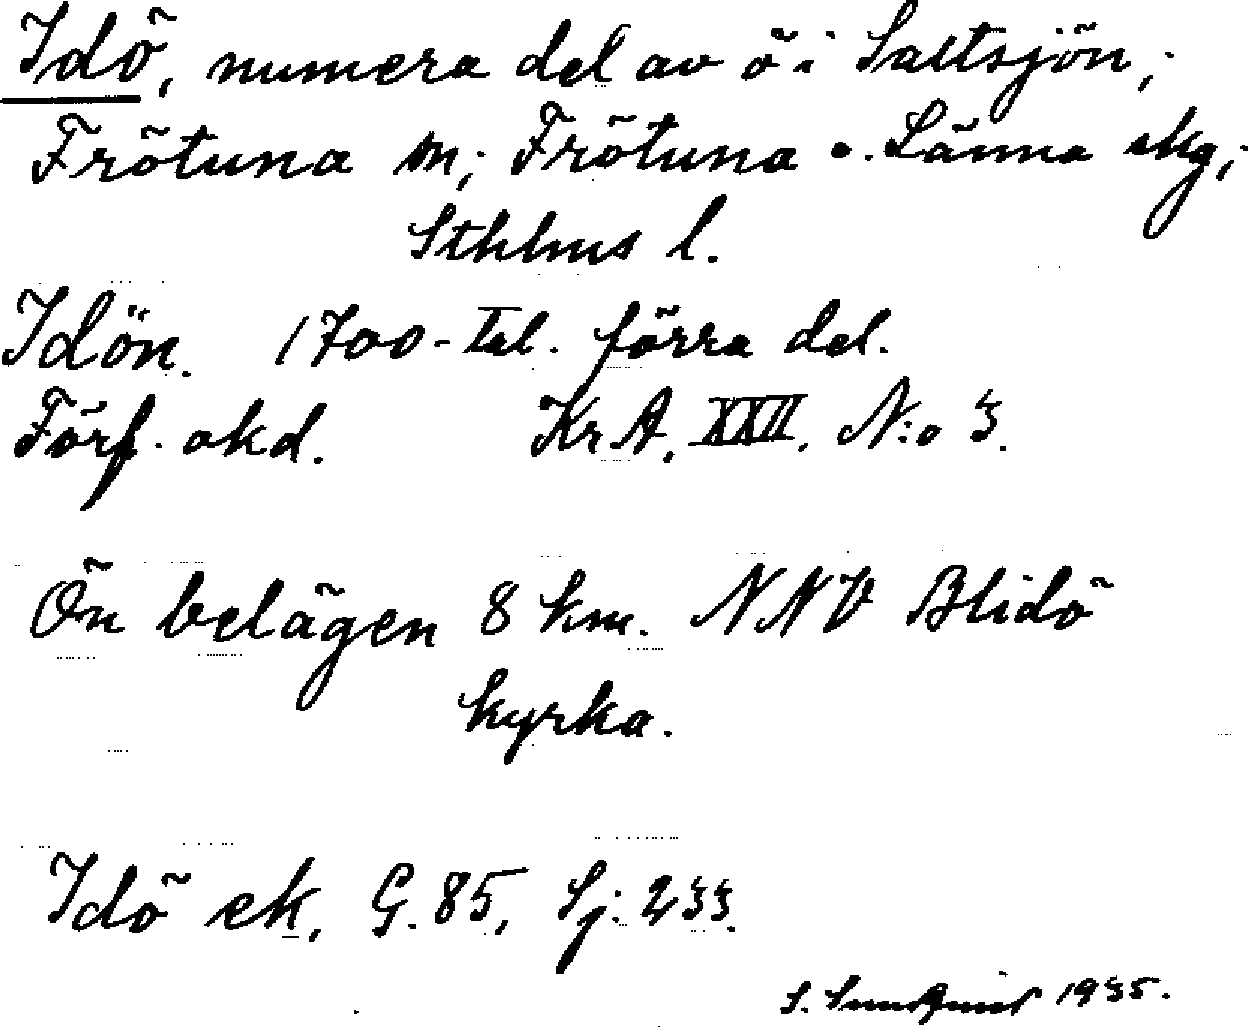 Idö, numera del av ö i Saltsjön;
Frötuna sn; Frötuna o. Länna skg;
Sthlms l.
Idön. 1700-tal. förra del.
Förf. okd. Kr A. XXII. N:o 3.
Ön belägen 8 km. NNV Blidö
kyrka.
Idö ek. G. 85, Sj: 233.
S. Sundquist 1935.